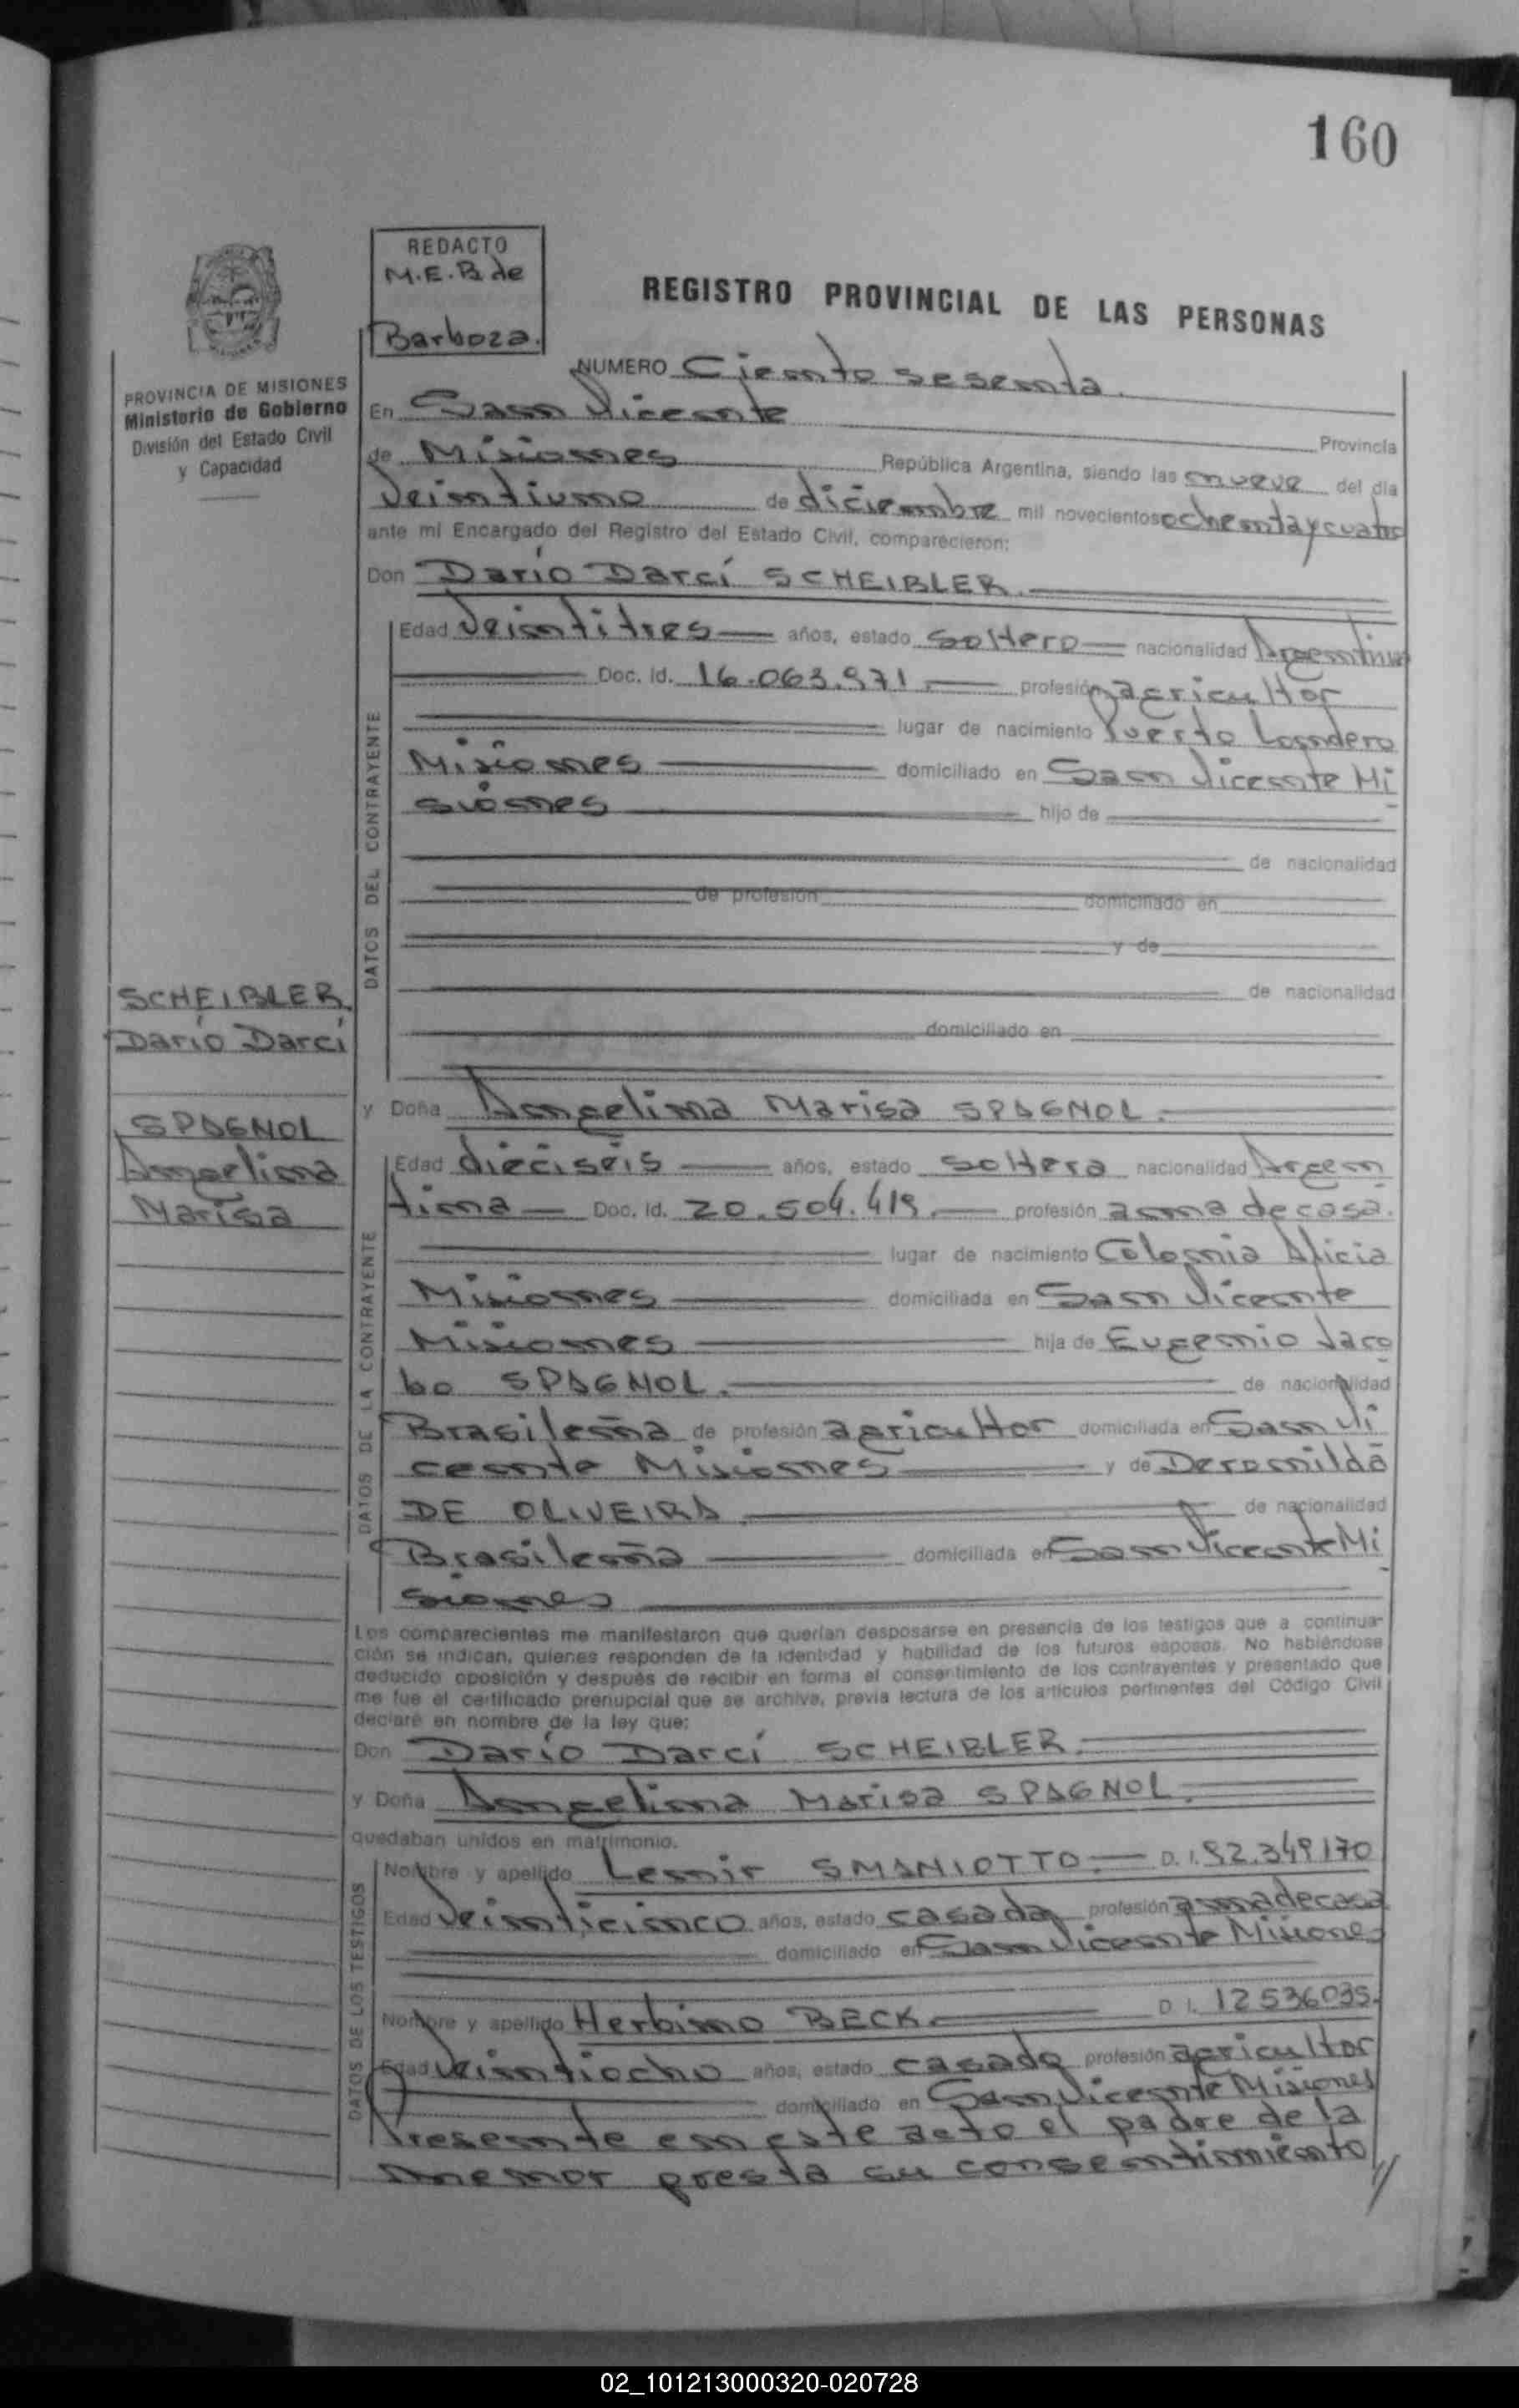 160
REDACTO
M.E.B de
Barboza.
REGISTRO PROVINCIAL DE LAS PERSONAS
PROVINCIA DE MISIONES
Ministerio de Gobierno
División del Estado Civil
y Capacidad
NUMERO Ciento sesenta.
En San Vicente Provincia
de Misiones República Argentina, siendo las nueve del día
Veintiuno de diciembre mil novecientos ochentaycuatro
ante mi Encargado del Registro del Estado Civil, comparecieron:
Don Darío Darcí SCHEIBLER.
Edad Veintitres años, estado soltero nacionalidad Argentina
Doc. Id. 16.063.971. profesión agricultor
lugar de nacimiento Puerto Londero
Misiones domiciliado en San Vicente Mi
siones hijo de
de nacionalidad
de profesión domiciliado en
y de
de nacionalidad
domiciliado en
SCHEIBLER
Darío Darcí
DATOS DEL CONTRAYENTE
y Doña Angelina Marisa SPAGNOL.
SPAGNOL
Angelina
Marisa
Edad dieciseis años, estado soltera nacionalidad Argen
tina Doc. Id. 20.504.419. profesión ama de casa.
lugar de nacimiento Colonia Alicia
Misiones domiciliada en San Vicente
Misiones hija de Eugenio Jaco
bo SPAGNOL. de nacionalidad
Brasileña de profesión agricultor domiciliada en San Vi
cente Misiones y de Deronilda
DE OLIVEIRA. de nacionalidad
Brasileña domiciliada en San Vicente Mi
siones
DATOS DE LA CONTRAYENTE
Los comparecientes me manifestaron que querían desposarse en presencia de los testigos que a continua-
ción se indican, quienes responden de la identidad y habilidad de los futuros esposos. No habiéndose
deducido oposición y después de recibir en forma el consentimiento de los contrayentes y presentado que
me fue el certificado prenupcial que se archiva, previa lectura de los artículos pertinentes del Código Civil
declaré en nombre de la ley que:
Don Darío Darcí SCHEIBLER.
y Doña Angelina Marisa SPAGNOL.
quedaban unidos en matrimonio.
Nombre y apellido Lenir SMANIOTTO. D. I. 92.349170
Edad Veinticinco años, estado casada profesión amadecasa
domiciliado en San Vicente Misiones
Nombre y apellido Herbino BECK. D. I. 12536035.
Edad Veintiocho años, estado casado profesión agricultor
domiciliado en San Vicente Misiones
DATOS DE LOS TESTIGOS
Presente en este acto el padre de la
menor presta su consentimiento //
02_101213000320-020728